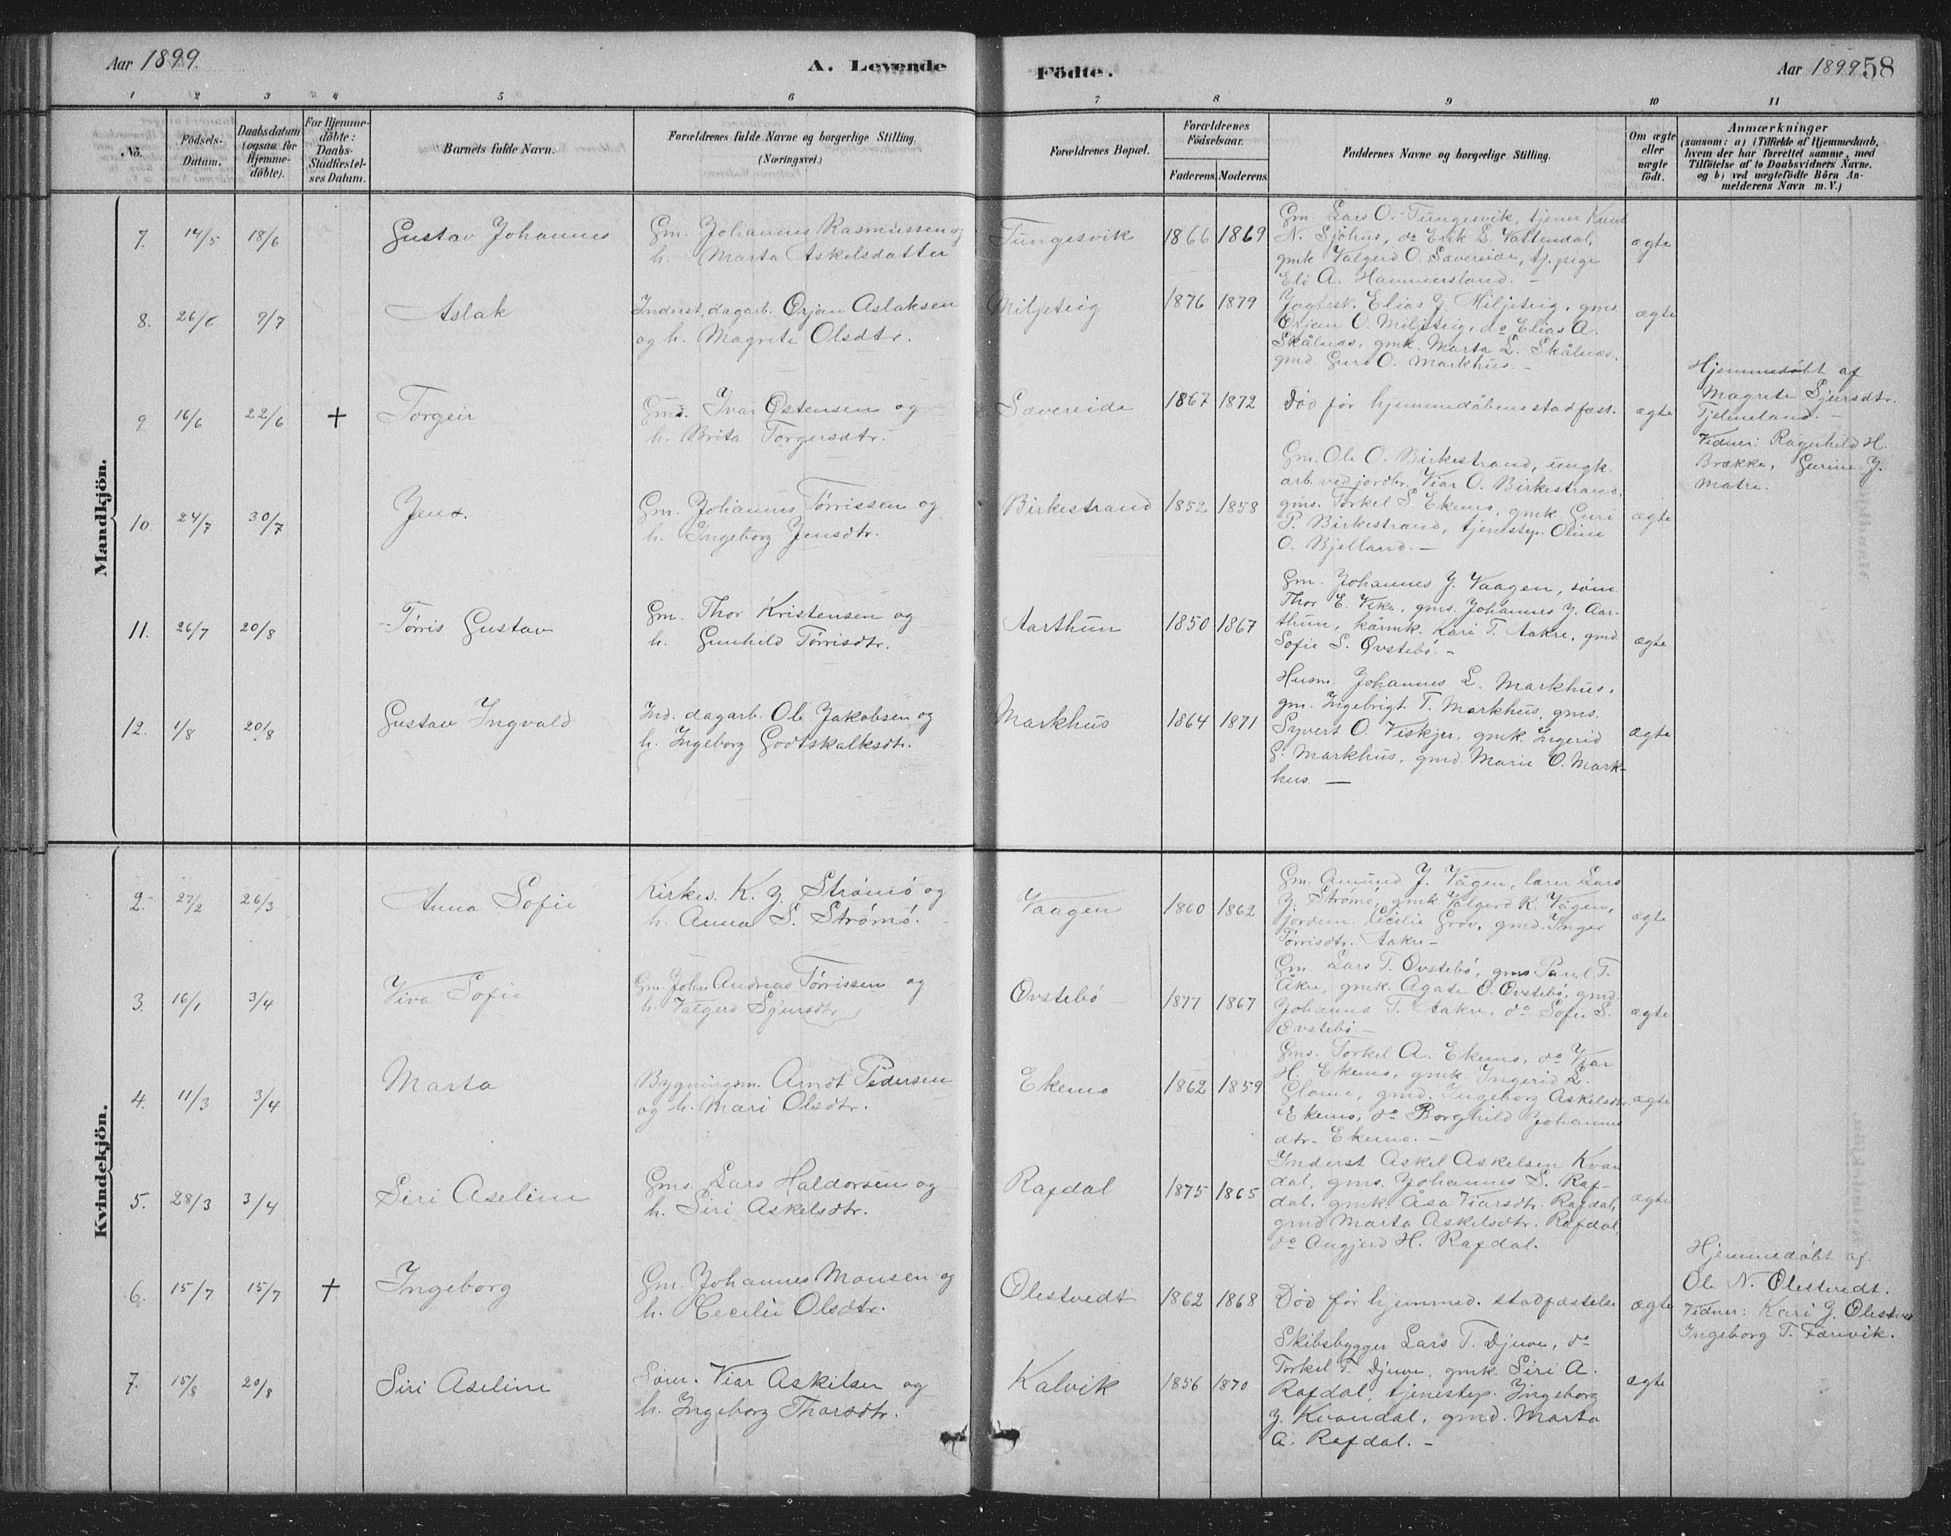 Aar 1899.
A. Levende
Födte.
Aar 1899
58
1 2 3 4 5 6 7 8 9 10 11
No.
Födsels-
Datum.
Daabsdatum
(ogsaa for
Hjemme-
döbte).
For Hjemme-
döbte:
Daabs-
Stadfæstel-
ses Datum.
Barnets fulde Navn.
Forældrenes fulde Navne og borgerlige Stilling.
(Næringsvei.)
Forældrenes Bopæl.
Forældrenes
Födselsaar.
Faderens. Moderens.
Faddernes Navne og borgerlige Stilling.
Om ægte
eller
uægte
födt.
Anmærkninger
(saasom: a) i Tilfælde af Hjemmedaab,
hvem der har forrettet samme, med
Tilföielse af to Daabsvidners Navne.
og b) ved uægtefödte Börn An-
melderens Navn m. V.)
Mandkjön.
7. 14/5 18/6 Gustav Johannes
Gm. Johannes Rasmussen og
h. Marta Askelsdatter
Tungesvik 1866 1869
Gm. Lars O. Tungesvik, tjener Knut
N. Sjöhus, do Erik L. Vattendal,
gmk Valgerd O. Sævereide, tj. pige
Eli A. Hammersland. —
ægte
8. 26/6 9/7 Aslak
Inderst, dagarb. Örjan Aslaksen
og h. Magrete Olsdtr.
Miljeteig 1876 1879
Elias J. Miljeteig, gms.
Örjan O. Miljeteig, do Elias A.
Skålnæs, gmk. Marta L. Skålnæs,
gmd. Guro O. Markhus. —
ægte
9. 16/6 22/6 + Torgeir
Gmd. Ivar Östensen og
h. Brita Torgersdtr.
Sævereide 1867 1872
Död för hjemmedåbens stadfæst.
ægte
Hjemmedöbt af
Magrete Sjursdtr.
Tjelmeland. —
Vidner: Ragnhild H.
Brække, Gurine J.
Matre.
10. 24/7 30/7 Jens.
Gm. Johannes Törrissen og
h. Ingeborg Jensdtr.
Birkestrand 1852 1858
Gm. Ole O. Birkestrand, ungk.
arb. ved jordbr. Viar O. Birkestrand,
gms. Torkel S. Ekemo, gmk. Guri
P. Birkestrand, tjenestep. Oline
O. Bjelland. —
ægte
11. 26/7 20/8 Törris Gustav
Gm. Thor Kristensen og
h. Gunhild Törrisdtr.
Aarthun 1850 1867
Gm. Johannes J. Vaagen, söm.
Thor E. Vika, gms. Johannes J. Aar-
thun, kårmk. Kari T. Aakre, gmd.
Sofie S. Övstebö. —
ægte
12. 1/8 20/8 Gustav Ingvald
Ind. dagarb. Ole Jakobsen og
h. Ingeborg Godtskalksdtr.
Markhus 1864 1871
Husm. Johannes L. Markhus,
gm. Ingebrigt T. Markhus, gms.
Syvert O. Viskjer, gmk. Ingerid
G. Markhus, gmd. Marie O. Mark-
hus. —
ægte
Kvindekjön.
2. 27/2 26/3 Anna Sofie
Kirkes. K. J. Strömö og
h. Anna S. Strömö.
Vaagen 1860 1862
Gm. Amund J. Vågen, lærer Lars
J. Strömö, gmk Valgerd K. Vågen,
jordem. Cecilie Grov, gmd. Inger
Törrisdtr. Aakre —
ægte
3. 16/1 3/4 Viva Sofie
Gm. John Andreas Törrissen og
h. Valgerd Sjursdtr
Övstebö 1877 1867
Gm Lars T. Övstebö, gms Paul T.
Åkre, gmk. Agate O. Övstebö, gmd.
Johannes T. Aakre, do Sofie S.
Övstebö. —
ægte
4. 11/3 3/4 Marta
Bygningsm. Arndt Pedersen
og h. Mari Olsdtr.
Ekemo 1862 1859
Gms. Torkel A. Ekemo, do Viar
H. Ekemo, gmk Ingerid L.
gmd. Ingeborg Askelsdtr.
Ekemo, do Borghild Johannes
dtr. Ekemo. —
ægte
5. 28/3 3/4 Siri Aseline
Gms. Lars Haldorsen og
h. Siri Askelsdtr.
Rafdal 1875 1865
Inderst Askel Askelsen Kvan
dal, gms. Johannes S. Raf-
dal, gmk. Åsa Viarsdtr. Rafdal,
gmd Marta Askelsdtr. Rafdal,
do Angjerd H. Rafdal.
ægte
6. 15/7 15/7 + Ingeborg
Gm. Johannes Monsen og
h. Cecilie Olsdtr.
Ölestvedt 1862 1868
Död för hjemmed. stadfæstelse
ægte
Hjemmedöbt af
Ole N. Ölestvedt.
Vidner: Kari J. Ölestv
Ingeborg T. Færevik.
7. 15/8 20/8 Siri Aseline
Söm. Viar Askilsen og
h. Ingeborg Thorsdtr.
Kalvik 1856 1870
Skibsbygger Lars T. Djuve, do
Torkel T. Djuve, gmk. Siri A.
Rafdal, tjenestep. Ingeborg
J. Kvandal, gmd. Marta
A. Rafdal. —
ægte